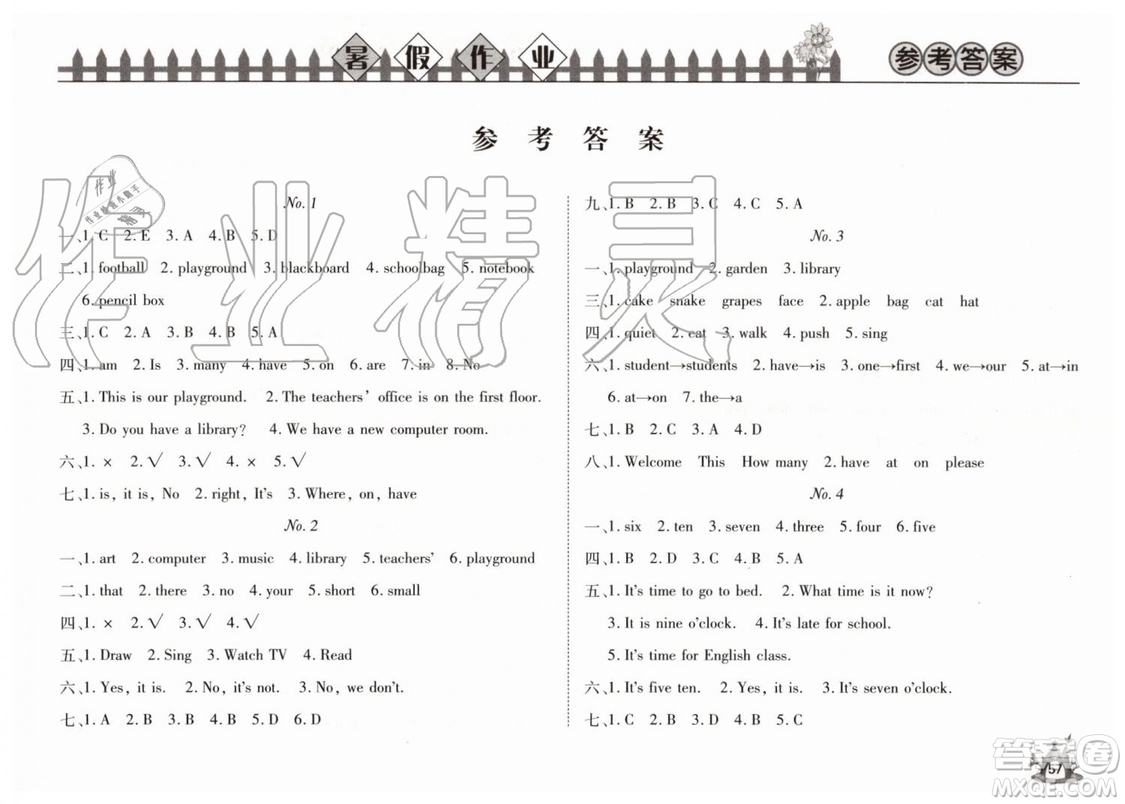 暑假作业
参考答案
参考答案
No. 1
一、1. C 2. E 3. A 4. B 5. D
二、1. football 2. playground 3. blackboard 4. schoolbag 5. notebook
6. pencil box
三、1. C 2. A 3. B 4. B 5. A
四、1. am 2. Is 3. many 4. have 5. on 6. are 7. in 8. No
五、1. This is our playground. 2. The teachers’ office is on the first floor.
3. Do you have a library? 4. We have a new computer room.
六、1. × 2. √ 3. √ 4. × 5. √
七、1. is, it is, No 2. right, It's 3. Where, on, have
No. 2
一、1. art 2. computer 3. music 4. library 5. teachers’ 6. playground
二、1. that 2. there 3. no 4. your 5. short 6. small
四、1. × 2. √ 3. √ 4. √
五、1. Draw 2. Sing 3. Watch TV 4. Read
六、1. Yes, it is. 2. No, it's not. 3. No, we don't.
七、1. A 2. B 3. B 4. D 5. B 6. D
九、1. B 2. B 3. C 4. C 5. A
No. 3
一、1. playground 2. garden 3. library
三、1. cake snake grapes face 2. apple bag cat hat
四、1. quiet 2. eat 3. walk 4. push 5. sing
六、1. student→students 2. have→is 3. one→first 4. we→our 5. at→in
6. at→on 7. the→a
七、1. B 2. C 3. A 4. D
八、1. Welcome This How many 2. have at on please
No. 4
一、1. six 2. ten 3. seven 4. three 5. four 6. five
四、1. B 2. D 3. C 4. B 5. A
五、1. It's time to go to bed. 2. What time is it now?
3. It is nine o'clock. 4. It's late for school.
5. It's time for English class.
六、1. It's five ten. 2. Yes, it is. 3. It's seven o'clock.
七、1. C 2. B 3. D 4. B 5. C
57
作业精灵
作业
作业检查小助手
精灵
答案圈
MXQE.COM